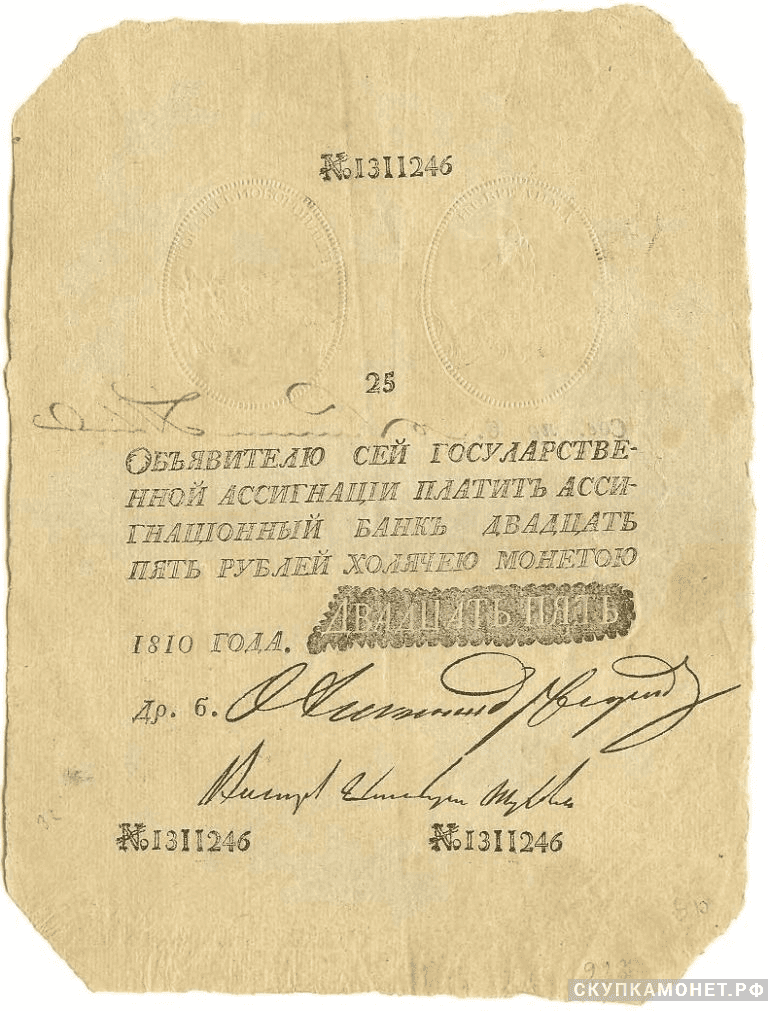 № 1311246
25
ОБЪЯВИТЕЛЮ СЕЙ ГОСУДАРСТВЕ-
ННОЙ АССИГНАЦІИ ПЛАТИТЪ АССИ-
ГНАЦІОННЫЙ БАНКЪ ДВАДЦАТЬ
ПЯТЬ РУБЛЕЙ ХОДЯЧЕЮ МОНЕТОЮ
ДВАДЦАТЬ ПЯТЬ
1810 ГОДА.
Др. б.
№ 1311246 № 1311246
СКУПКАМОНЕТ.РФ